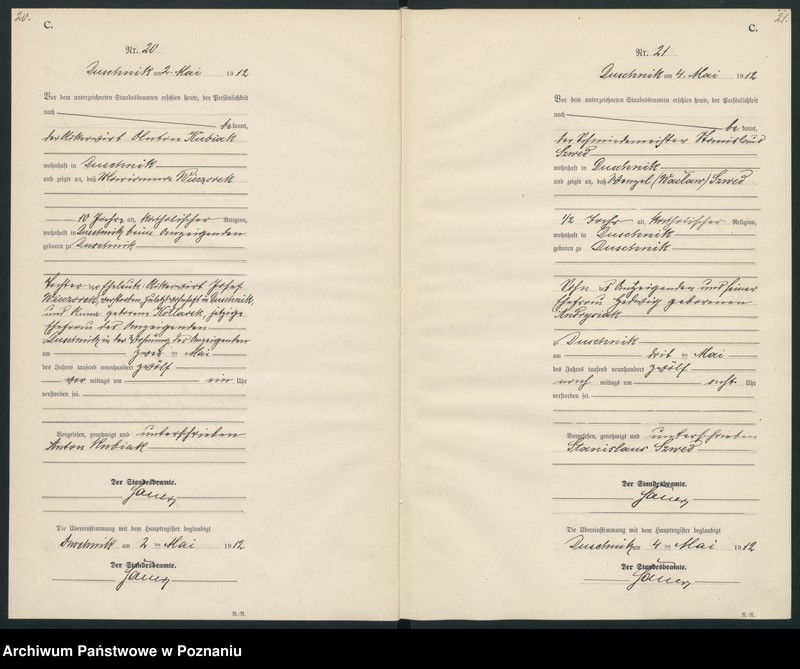 20.
C.
Nr. 20
Duschnik am 2. Mai 1912
Vor dem unterzeichneten Standesbeamten erschien heute, der Persönlichkeit
nach
bekannt,
der Ackerwirt Anton Kubiak
wohnhaft in Duschnik
und zeigte an, daß Marianna Wieczorek
10 Jahre alt, katholischer Religion,
wohnhaft in Duschnik beim Anzeigenden
geboren zu Duschnik
Tochter der Eheleute: Ackerwirt Josef
Wieczorek, verstorben, zuletzt wohnhaft in Duschnik,
und Anna geborene Kollarek, jetzige
Ehefrau des Anzeigenden
zu Duschnik, in der Wohnung des Anzeigenden
am zwei ten Mai
des Jahres tausend neunhundert zwölf
vor mittags um ein Uhr
verstorben sei.
Vorgelesen, genehmigt und unterschrieben
Anton Kubiak
Der Standesbeamte.
Die Übereinstimmung mit dem Hauptregister beglaubigt
Duschnik am 2 ten Mai 1912
Der Standesbeamte.
N.-R.
21.
C.
Nr. 21
Duschnik am 4. Mai 1912
Vor dem unterzeichneten Standesbeamten erschien heute, der Persönlichkeit
nach
bekannt,
der Schmiedemeister Stanislaus
Szwed
wohnhaft in Duschnik
und zeigte an, daß Wenzel (Wacław) Szwed
1/2 Jahr alt, katholischer Religion,
wohnhaft in Duschnik
geboren zu Duschnik
Sohn des Anzeigenden und seiner
Ehefrau Hedwig geborenen
Andrysiak
zu Duschnik
am drit ten Mai
des Jahres tausend neunhundert zwölf
nach mittags um acht Uhr
verstorben sei.
Vorgelesen, genehmigt und unterschrieben
Stanislaus Szwed
Der Standesbeamte.
Die Übereinstimmung mit dem Hauptregister beglaubigt
Duschnik am 4 ten Mai 1912
Der Standesbeamte.
N.-R.
Archiwum Państwowe w Poznaniu